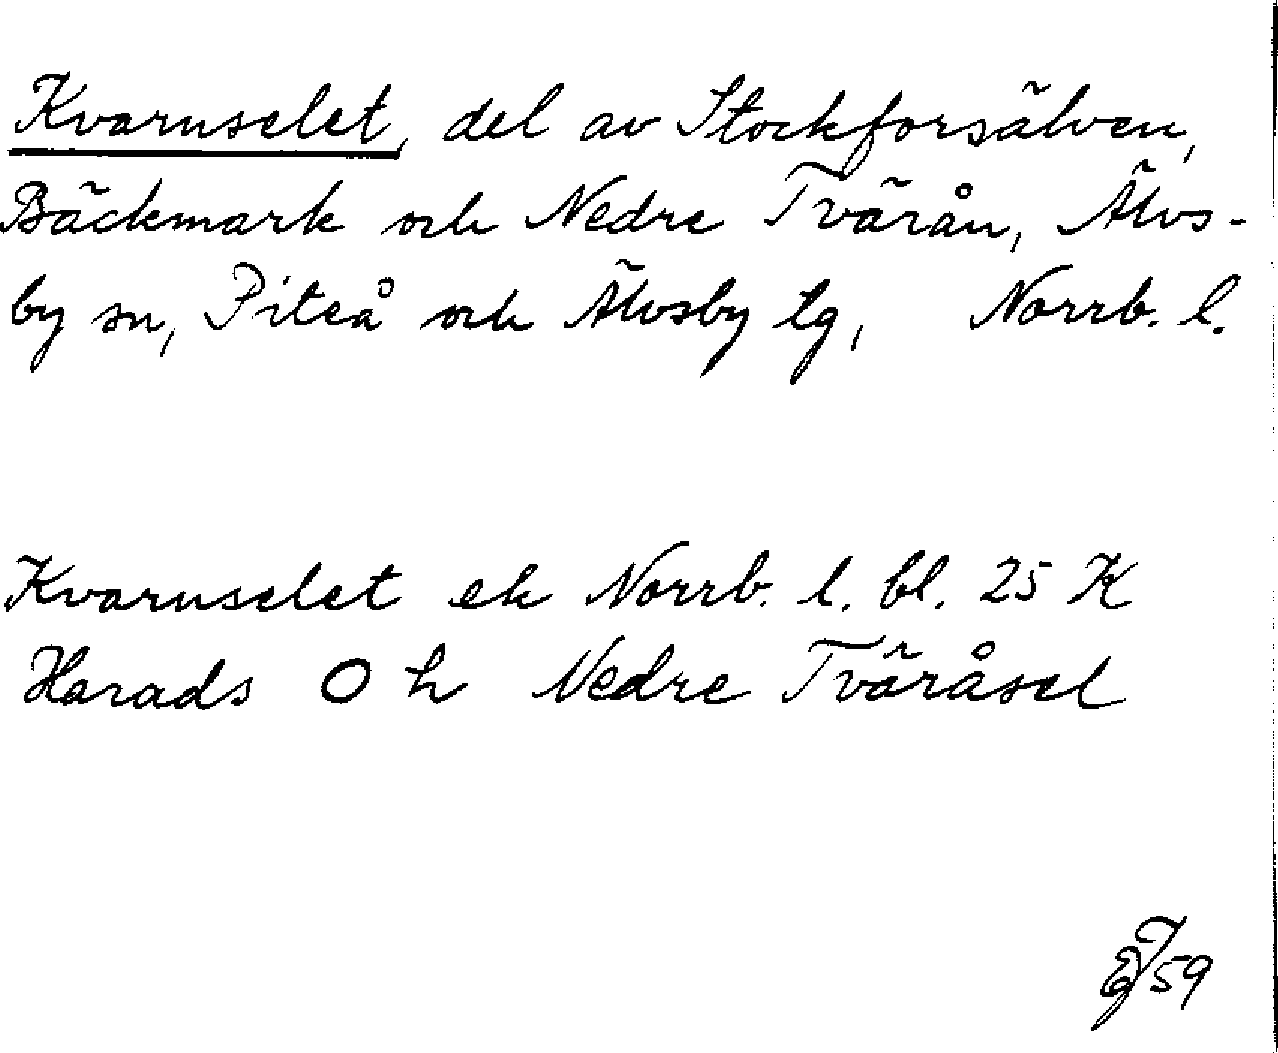 Kvarnselet, del av Stockforsälven,
Bäckmark och Nedre Tvärån, Älvs-
by sn, Piteå och Älvsby tg, Norrb. l.
Kvarnselet ek Norrb. l. bl. 25 K
Harads O h Nedre Tväråsel
59